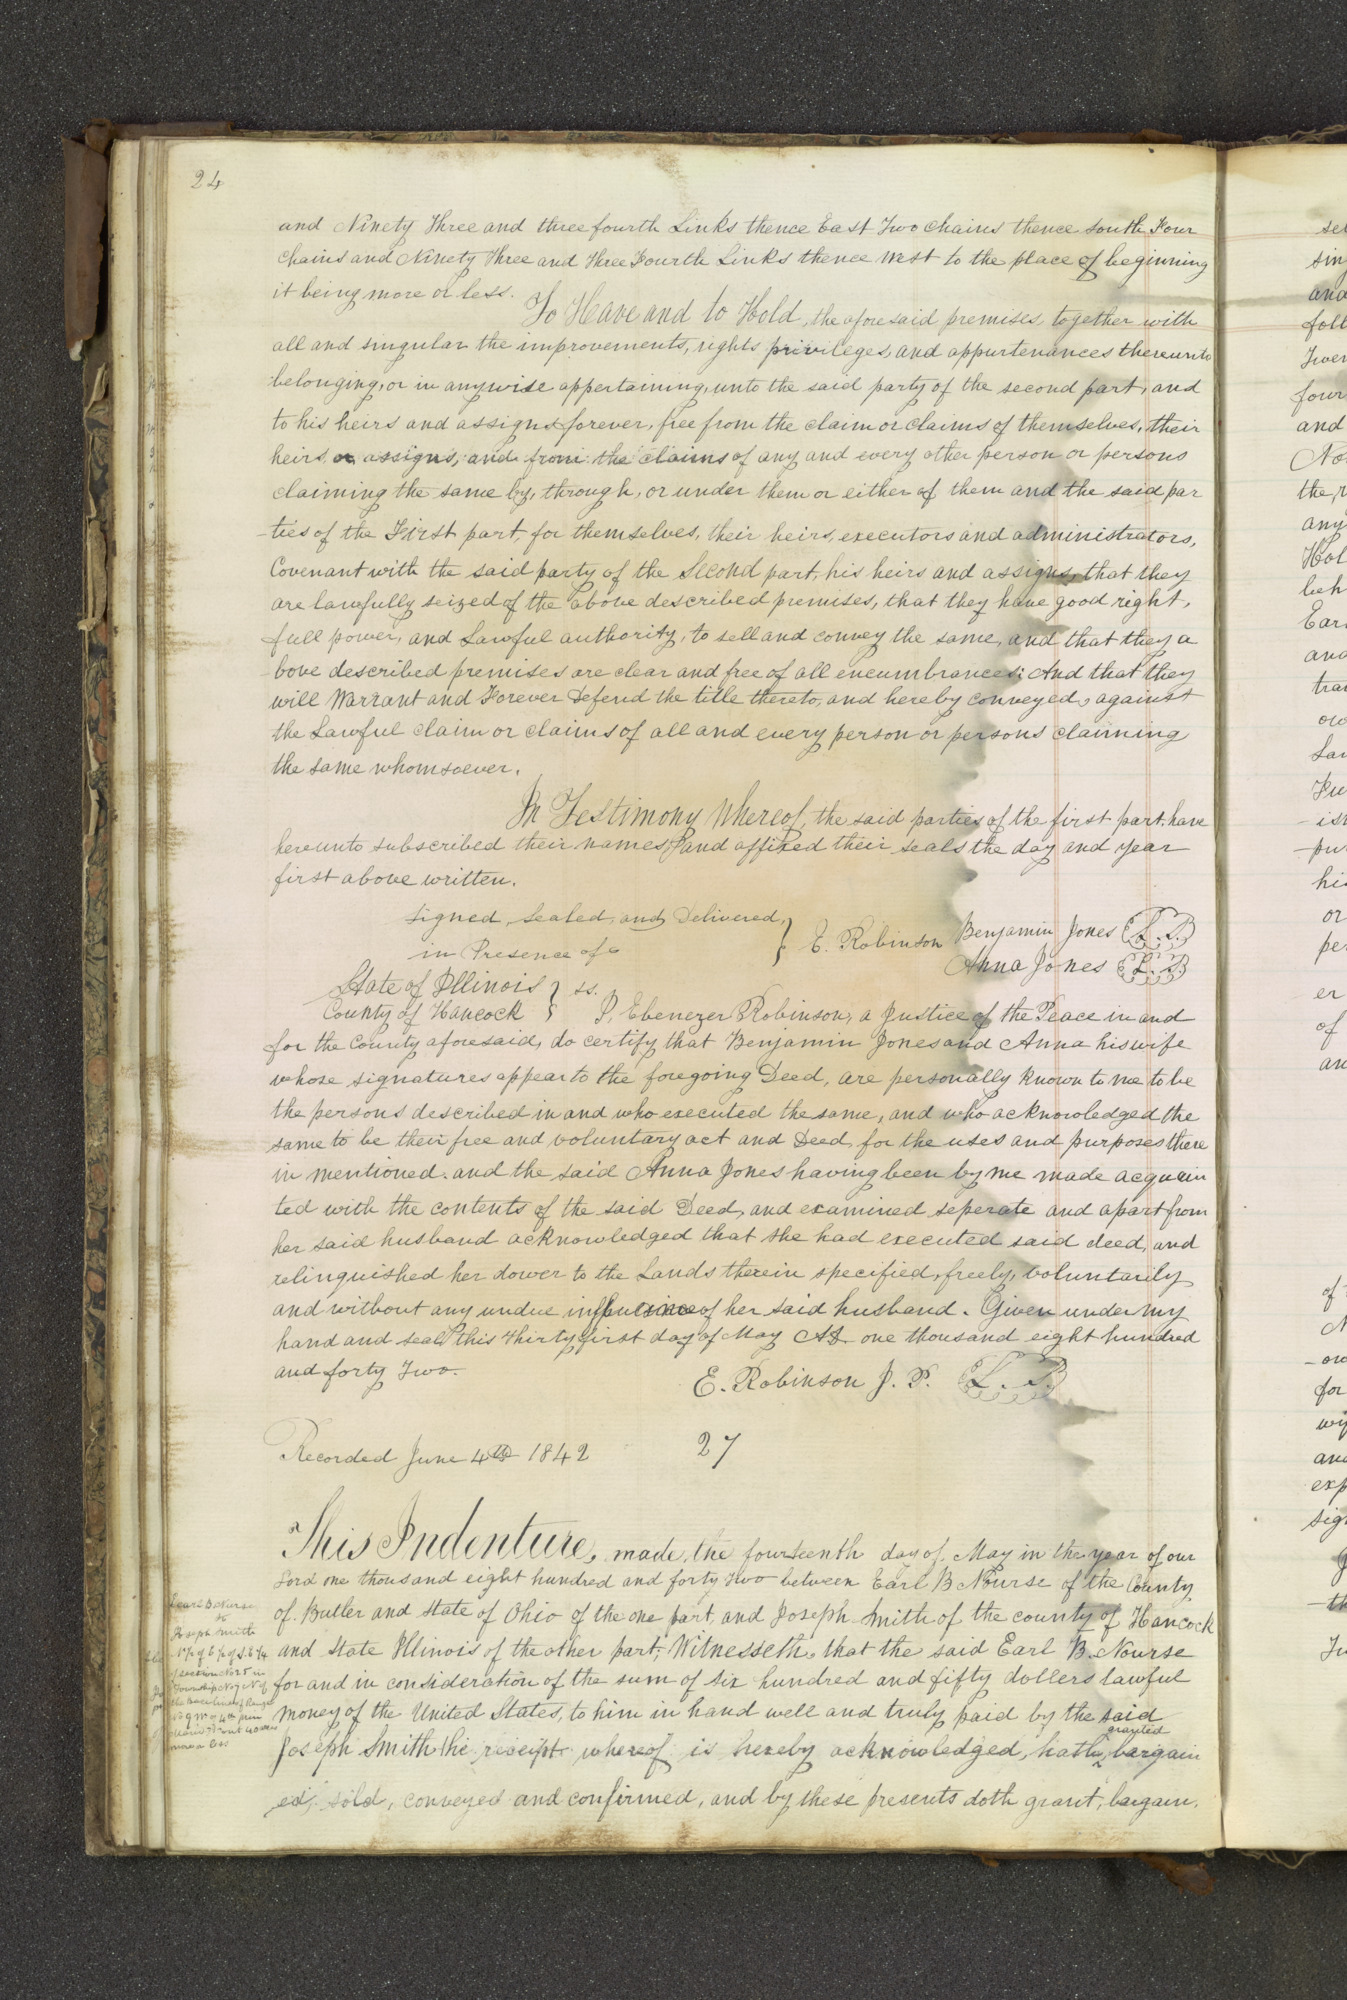 24
and Ninety Three and three fourth Links thence East Two Chains thence South Four
Chains and Ninety Three and Three Fourth Links thence West to the place of beginning
it being more or less.
To Have and to Hold, the aforesaid premises, together with
all and singular the improvements, rights privileges, and appurtenances thereunto
belonging, or in anywise appertaining, unto the said party of the second part, and
to his heirs and assigns forever, free from the claim or claims of themselves, their
heirs, or assigns, and from the claims of any and every other person or persons
claiming the same by, through, or under them or either of them and the said par
-ties of the First part, for themselves, their heirs, executors and administrators,
Covenant with the said party of the Second part, his heirs and assigns, that they
are lawfully seized of the above described premises, that they have good right,
full power, and Lawful authority, to sell and convey the same, and that they a
-bove described premises are clear and free of all encumbrances; And that they
will Warrant and Forever Defend the title thereto, and hereby conveyed, against
the Lawful claim or claims of all and every person or persons claiming
the same whomsoever.
In Testimony Whereof, the said parties of the first part, have
hereunto subscribed their names, and affixed their seals the day and year
first above written.
Signed, Sealed, and Delivered, } E. Robinson Benjamin Jones L.S.
in Presence of Anna Jones L.S.
State of Illinois } ss.
County of Hancock } I, Ebenezer Robinson, a Justice of the Peace in and
for the County aforesaid, do certify that Benjamin Jones and Anna his wife
whose signatures appear to the foregoing Deed, are personally known to me to be
the persons described in and who executed the same, and who acknowledged the
same to be their free and voluntary act and Deed, for the uses and purposes there
in mentioned. and the said Anna Jones having been by me made acquain
ted with the contents of the said Deed, and examined seperate and apart from
her said husband acknowledged that she had executed said deed, and
relinquished her dower to the Lands therein specified, freely, voluntarily
and without any undue influence of her said husband. Given under my
hand and seal this thirty first day of May AD. one thousand eight hundred
and forty Two.
E. Robinson J. P. L.S.
Recorded June 4th 1842 27
This Indenture, made, the fourteenth day of May in the year of our
Lord one thousand eight hundred and forty two between Earl B Nourse of the County
of Butler and State of Ohio of the one part, and Joseph Smith of the county of Hancock
and State Illinois of the other part; Witnesseth, that the said Earl B. Nourse
for and in consideration of the sum of Six hundred and fifty dollars lawful
money of the United States, to him in hand well and truly paid by the said
Joseph Smith the receipt whereof is hereby acknowledged, hath, granted bargain
ed, sold, conveyed and confirmed, and by these presents doth grant, bargain,
Earl B Nurse
to
Joseph Smith